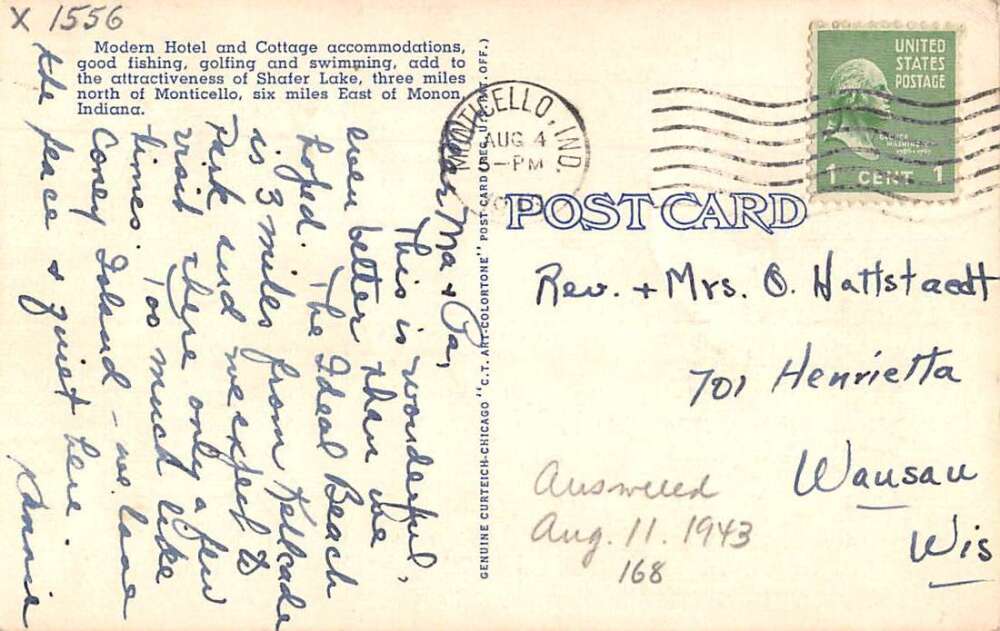 X 1556
Modern Hotel and Cottage accommodations,
good fishing, golfing and swimming, add to
the attractiveness of Shafer Lake, three miles
north of Monticello, six miles East of Monon,
Indiana.
Dear Ma & Pa,
This is wonderful,
even better than we
hoped. The Ideal Beach
is 3 miles from
Park and we expect to
visit there only a few
times. Too much like
Coney Island - we love
the peace & quiet here
GENUINE CURTEICH-CHICAGO "C.T. ART-COLORTONE" POST CARD (REG. U.S. PAT. OFF.)
MONTICELLO, IND.
AUG 4
PM
UNITED
STATES
POSTAGE
1 CENT 1
POST CARD
Rev. + Mrs. O. Hattstaedt
701 Henrietta
Wausau
Wis
Answered
Aug. 11. 1943
168